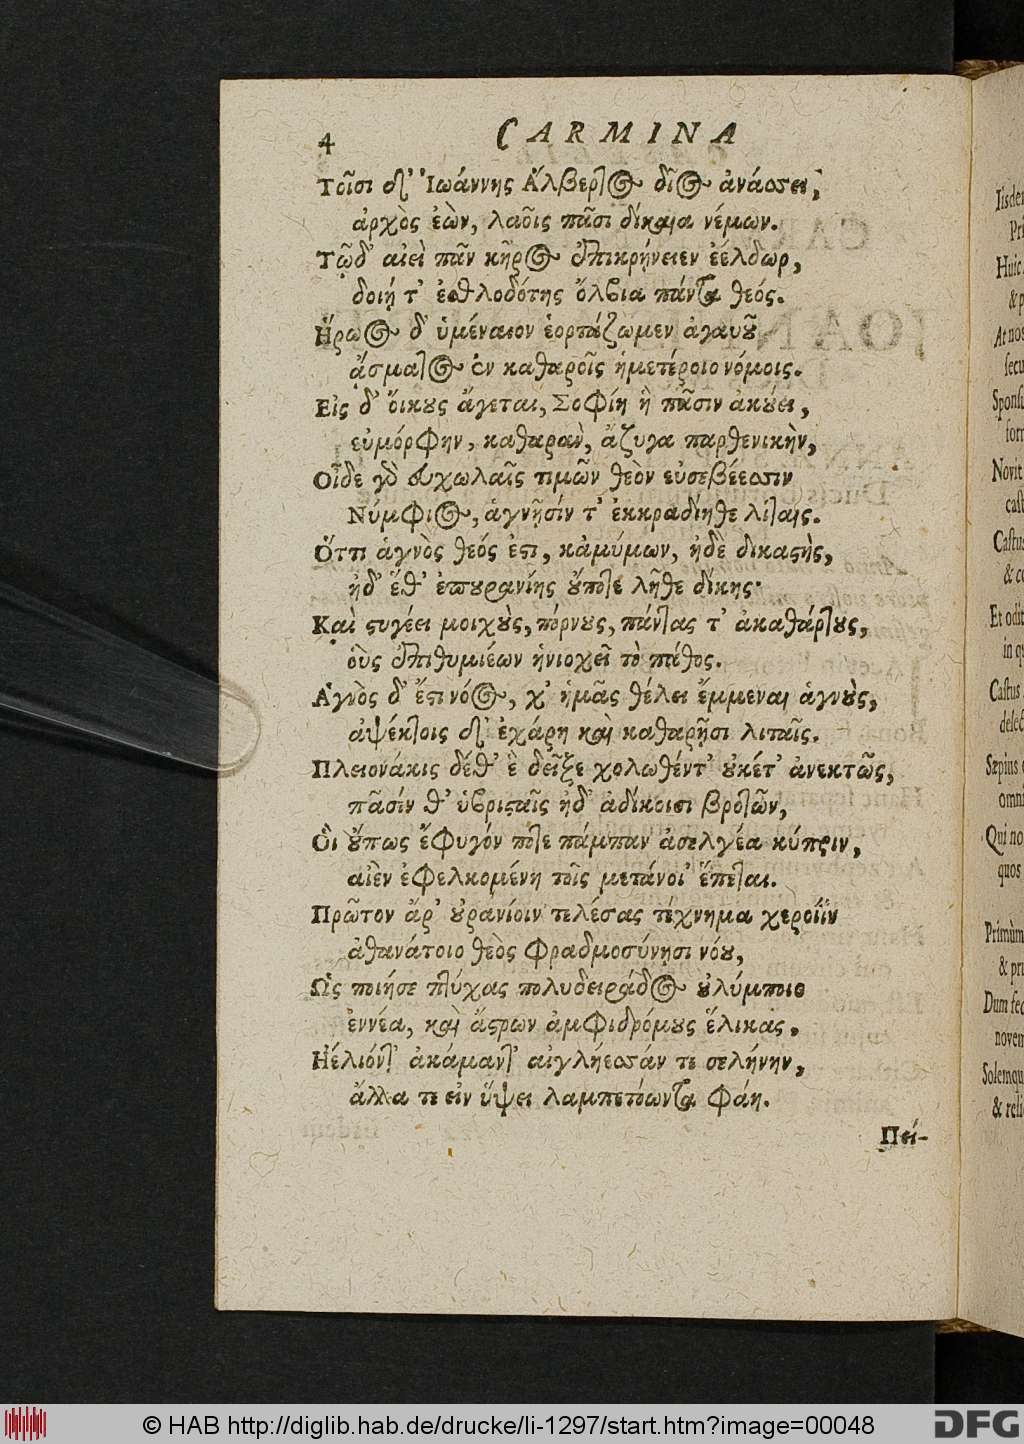 4 CARMINA
Τοῖσι δ' Ἰωάννης Ἄλβερτος δῖος ἀνάσσει,
ἀρχὸς ἐὼν, λαοῖς πᾶσι δίκαια νέμων.
Τῷδ' αἰεὶ πᾶν κῆρος ἐπικρήνειεν ἐέλδωρ,
δοιή τ' ἐσθλοδότης ὄλβια πάντα θεός.
Ἥρωος δ' ὑμέναιον ἑορτάζωμεν ἀγαυοῦ
ᾄσματος ἐν καθαροῖς ἡμετέροιο νόμοις.
Εἰς δ' οἴκους ἄγεται, Σοφίη ἣ πᾶσιν ἀκούει,
εὐμόρφην, καθαρὰν, ἄζυγα παρθενικὴν,
Οἶδε γὸ εὐχωλαῖς τιμῶν θεὸν εὐσεβέεσσιν
Νύμφιος, ἁγνῇσίν τ' ἐκκραδίηθε λίταις.
Ὅττι ἁγνὸς θεός ἐστι, κἀμύμων, ἠδὲ δικαστὴς,
ἠδ' ἔθ' ἐπουρανίης οὔποτε λῆθε δίκης·
Καὶ στυγέει μοιχοὺς, πόρνους, πάντας τ' ἀκαθάρτους,
οὓς ἐπιθυμιέων ἡνιοχεῖ τὸ πάθος.
Ἁγνὸς δ' ἔστι νόος, χ' ἡμᾶς θέλει ἔμμεναι ἁγνοὺς,
ἀψέκτοις δ' ἐχάρη καὶ καθαρῇσι λιταῖς.
Πλειονάκις δέθ' ἓ δεῖξε χολωθέντ' οὐκέτ' ἀνεκτῶς,
πᾶσίν θ' ὑβρισταῖς ἠδ' ἀδίκοισι βροτῶν,
Οἳ οὔπως ἔφυγόν ποτε πάμπαν ἀσελγέα κύπριν,
αἰὲν ἐφελκομένη τοῖς μετάνοι' ἕπεται.
Πρῶτον ἄρ' οὐρανίοιν τελέσας τέχνημα χεροίϊν
ἀθανάτοιο θεὸς φραδμοσύνῃσι νόου,
Ὣς ποιήσε πτύχας πολυδειράδος οὐλύμποιο
ἐννέα, καὶ ἄστρων ἀμφιδρόμους ἕλικας,
Ἠέλιόντ' ἀκάμαντ' αἰγλήεσσάν τε σελήνην,
ἄλλα τε εἰν ὕψει λαμπετόωντα φάη.
Πεί-
© HAB http://diglib.hab.de/drucke/li-1297/start.htm?image=00048
DFG